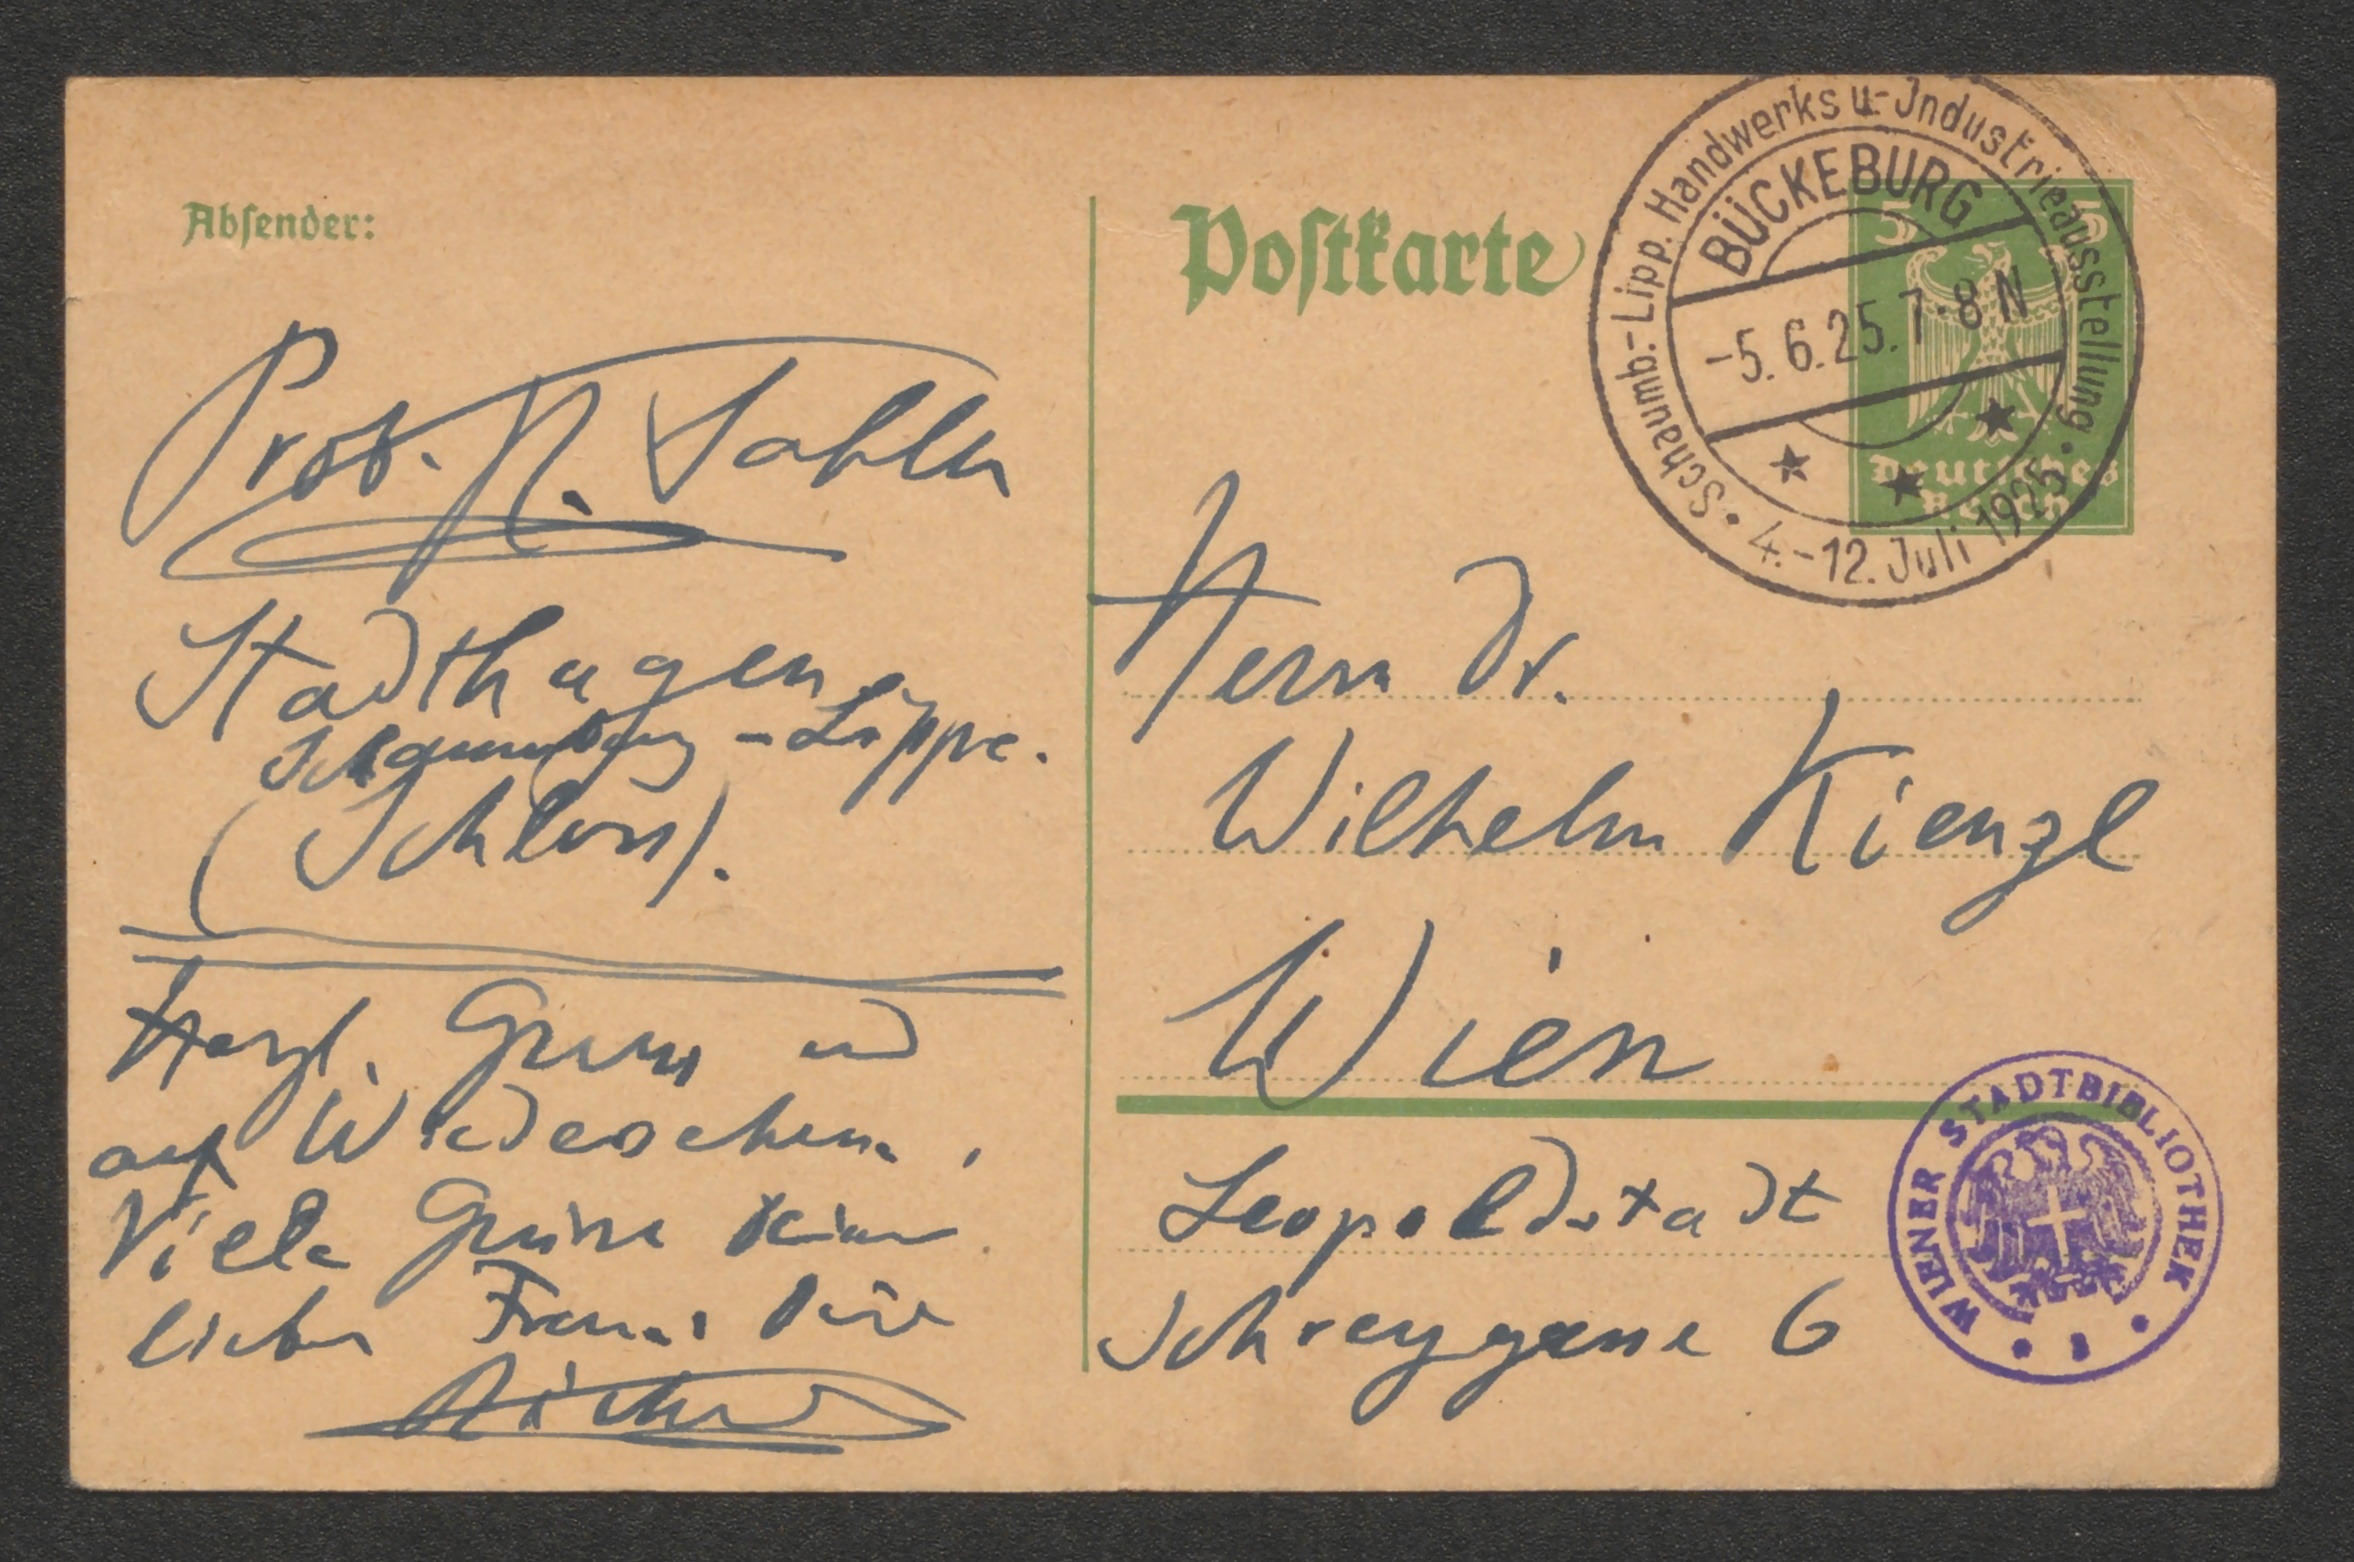 Absender:
Prof. R. Sahla
Stadthagen
Schaumburg-Lippe.
(Schloss).
Herzl. Gruss und
auf Wiedersehen.
Viele Grüsse
lieben Frau.
Richard
Postkarte
Schaumb.-Lipp. Handwerks u. Jndustrieausstellung
BÜCKEBURG
-5.6.25.7-8N
4.-12. Juli 1925
5 5
Deutsches
Reich
Herrn Dr.
Wilhelm Kienzl
Wien
Leopoldstadt
Schreygasse 6
WIENER STADTBIBLIOTHEK